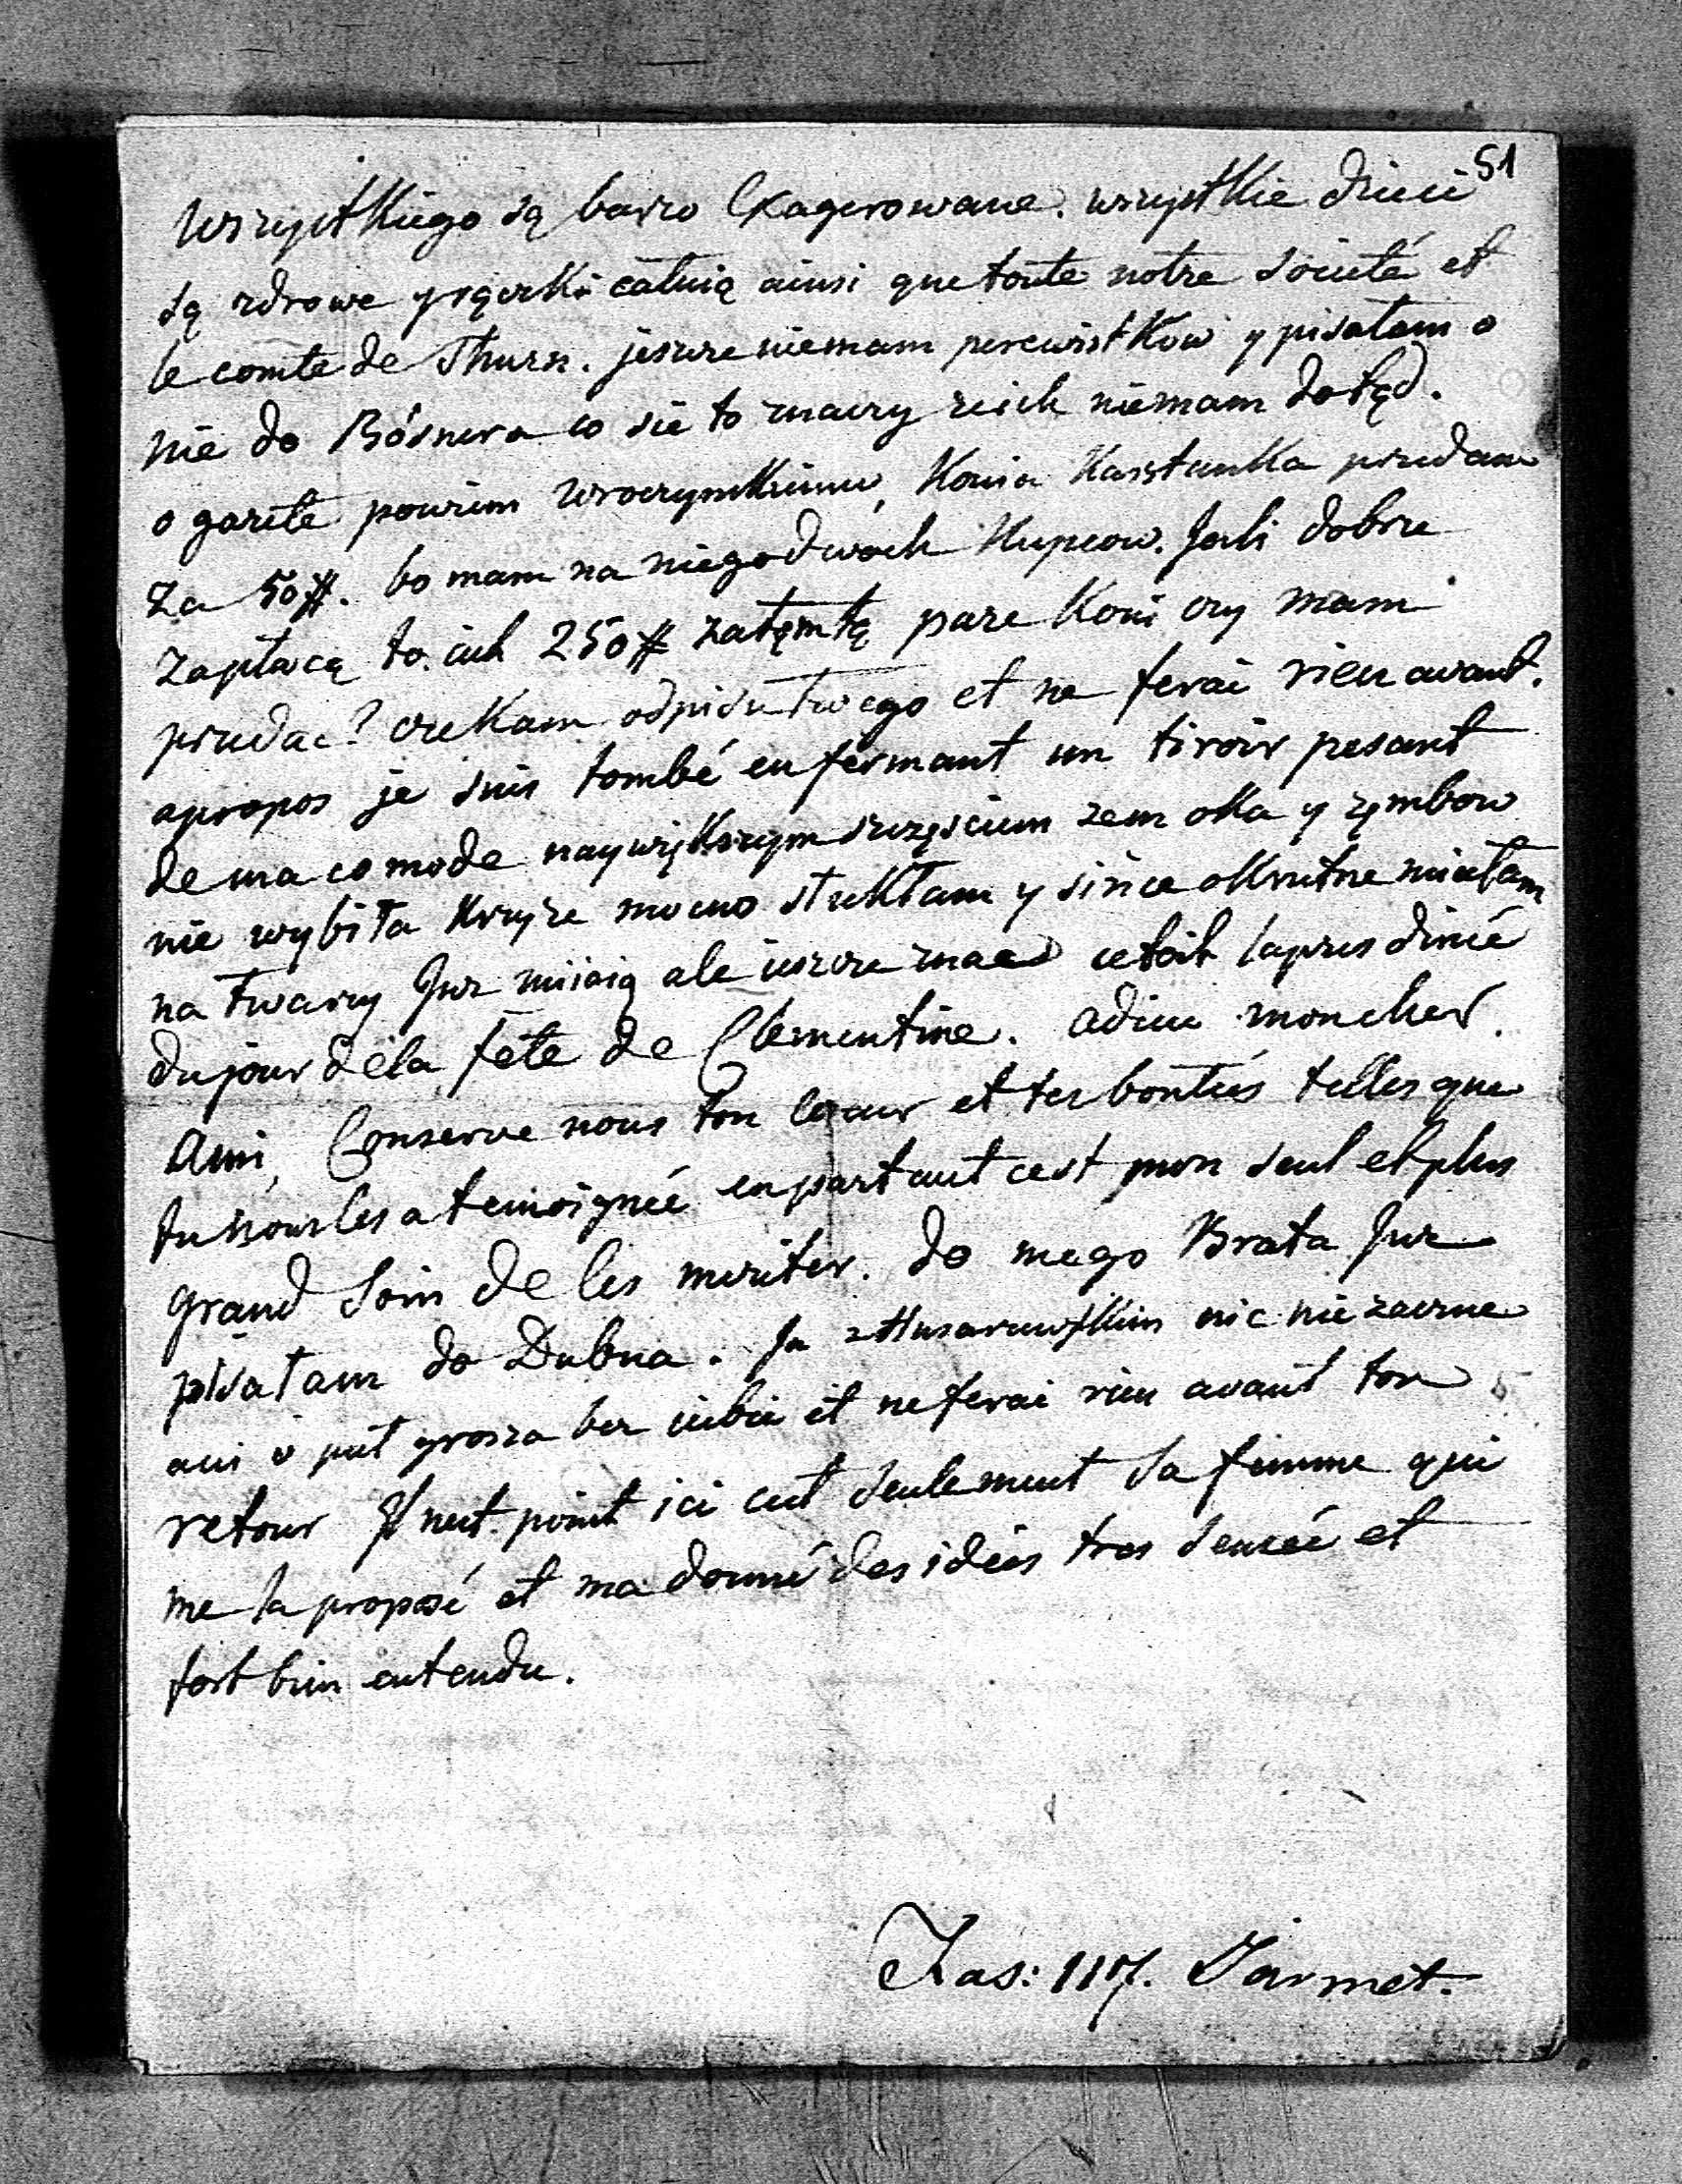 51
wszystkiego są barzo Exagerowane. wszystkie dzieci
są zdrowe y rączki całuią ainsi que toute notre societé et
le comte de Thurn. jeszcze niemam perewistkow y pisałam o
nie do Bósnera co sie to znaczy zeich niemam dotęd.
o gazete powiem Wroczynskiemu, Konia Kasztanka przedam
za 50#. bo mam na niego dwóch Kupcow. Jesli dobrze
zapłacą to iuh 250# zatęmtą pare Koni czy mam
przedac? czekam odpisu twego et ne ferai rien avant.
apropos je suis tombé en fermant un tiroir pesant
de ma comode naywiękrzym szczęsciem zem oka y zymbow
nie wybiła Krzyże mocno stukłam y since okrutne miełam
na twarzy Juz miiaią ale ieszcze znac cetoit lapres diné
du jour dela fete de Clementine. adieu moncher
Ami, Conserve nous ton Coeur et tes bontués telles que
tu nous les a temoignée enpartant cest mon seul et plus
grand soin de les meriter. do mego Brata Juz
pisałam do Dubna. Ja z Husarzewskim nic nie zaczne
ani o puł grosza bez ciebie et ne ferai rien avant ton
retour Il nest point ici cest seulement sa femme qui
me la proposé et ma donné des idées tres sensée et
fort bien entendu.
Zas: 117. Jarmet.